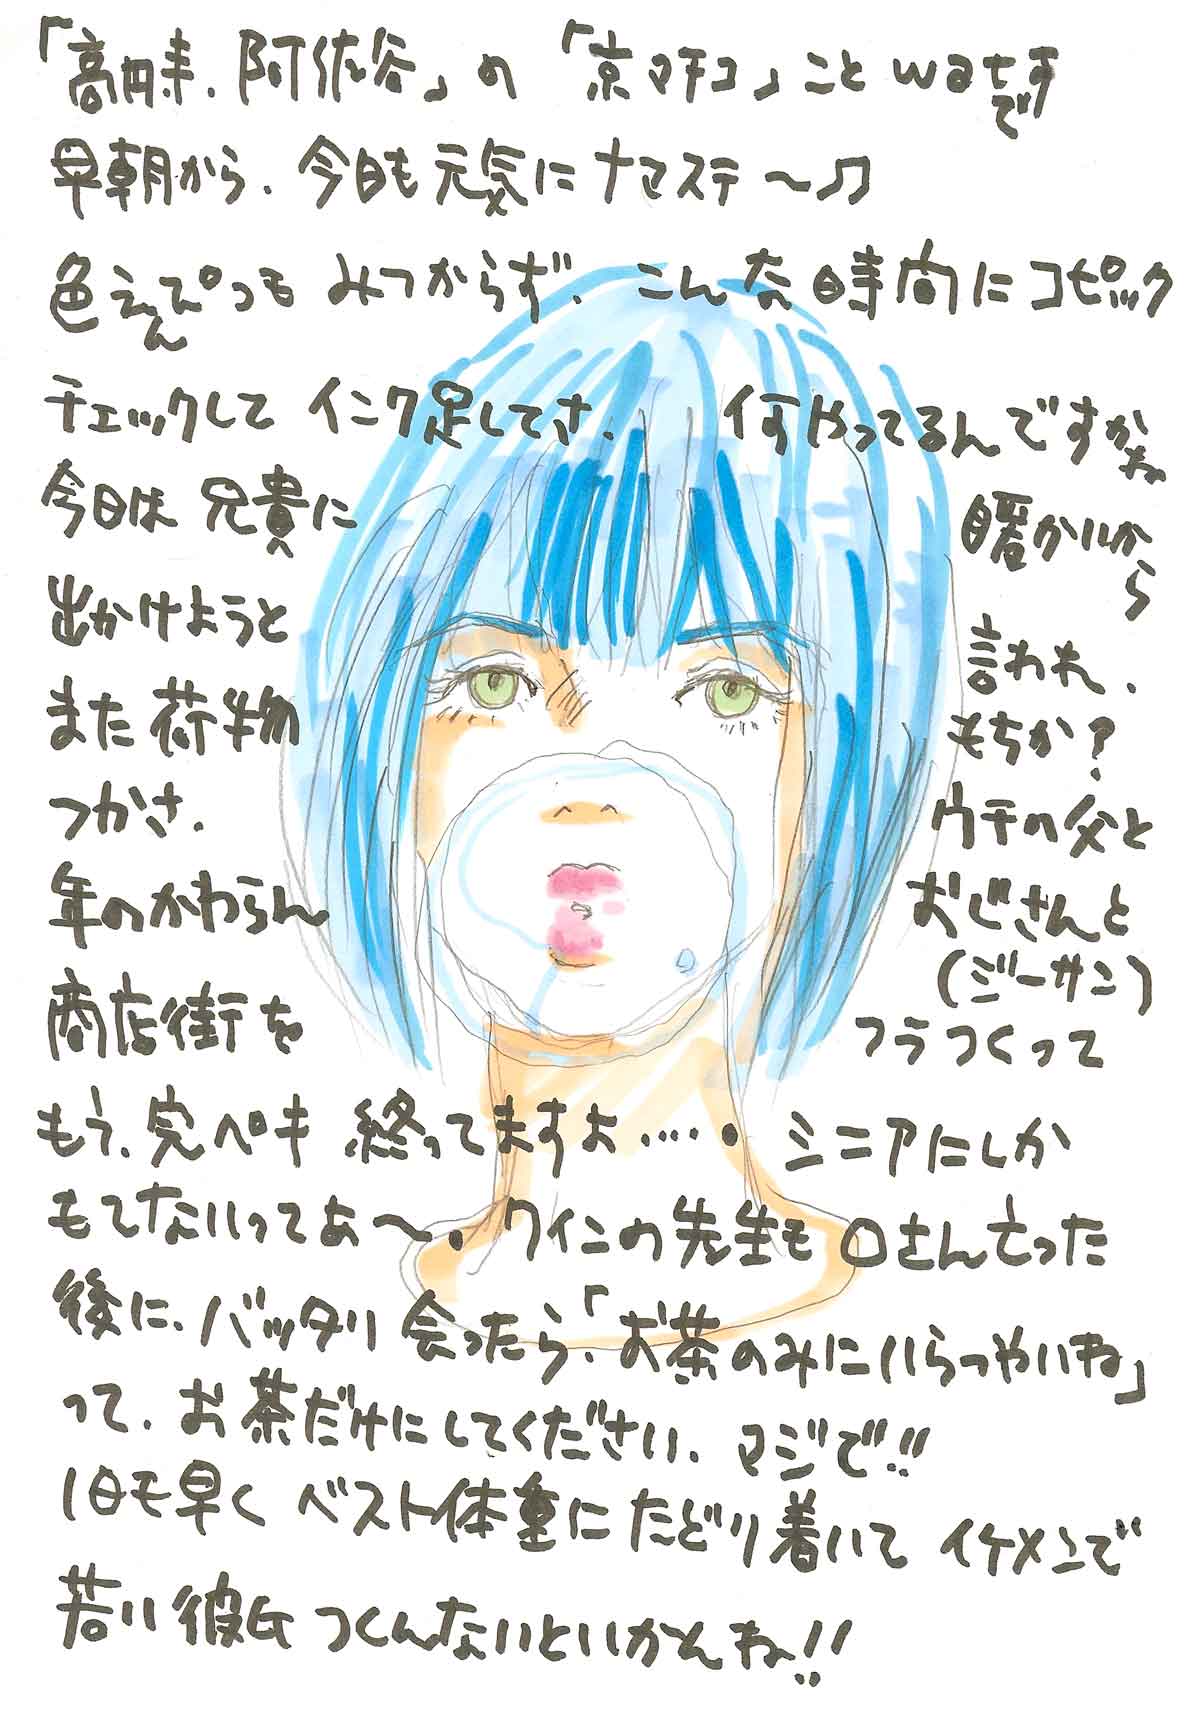 「高円寺、阿佐谷」の「京マチコ」こと watすです
早朝から、今日も元気にナマステ〜♫
色えんぴつもみつからず、こんな時間にコピック
チェックしてインク足してさ、何やってるんですかね
今日は兄貴に暖かいから
出かけようと言われ、
また荷物もちか?
つかさ、ウチの父と
年のかわらんおじさんと
(ジーサン)
商店街をフラつくって
もう、完ペキ終ってますよ‥‥。シニアにしか
もてないってあ〜。ワインの先生も○さん亡った
後に、バッタリ会ったら、「お茶のみにいらっやいね」
って、お茶だけにしてください、マジで!!
1日も早くベスト体重にたどり着いてイケメンで
若い彼氏つくんないといかんね!!